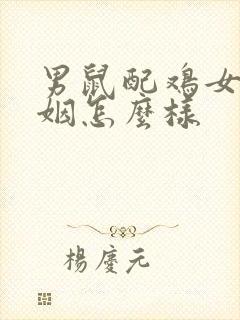 男鼠配鸡女
姻怎麼樣
楊慶元